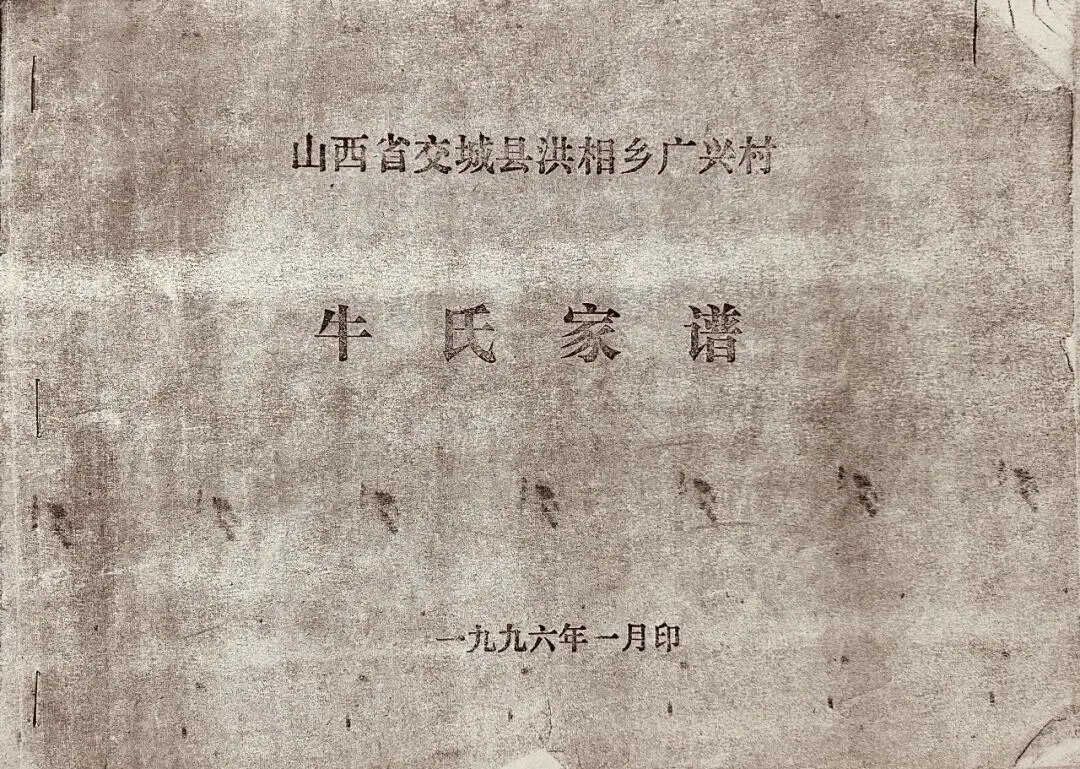 山西省交城县洪相乡广兴村
牛氏家谱
一九九六年一月印